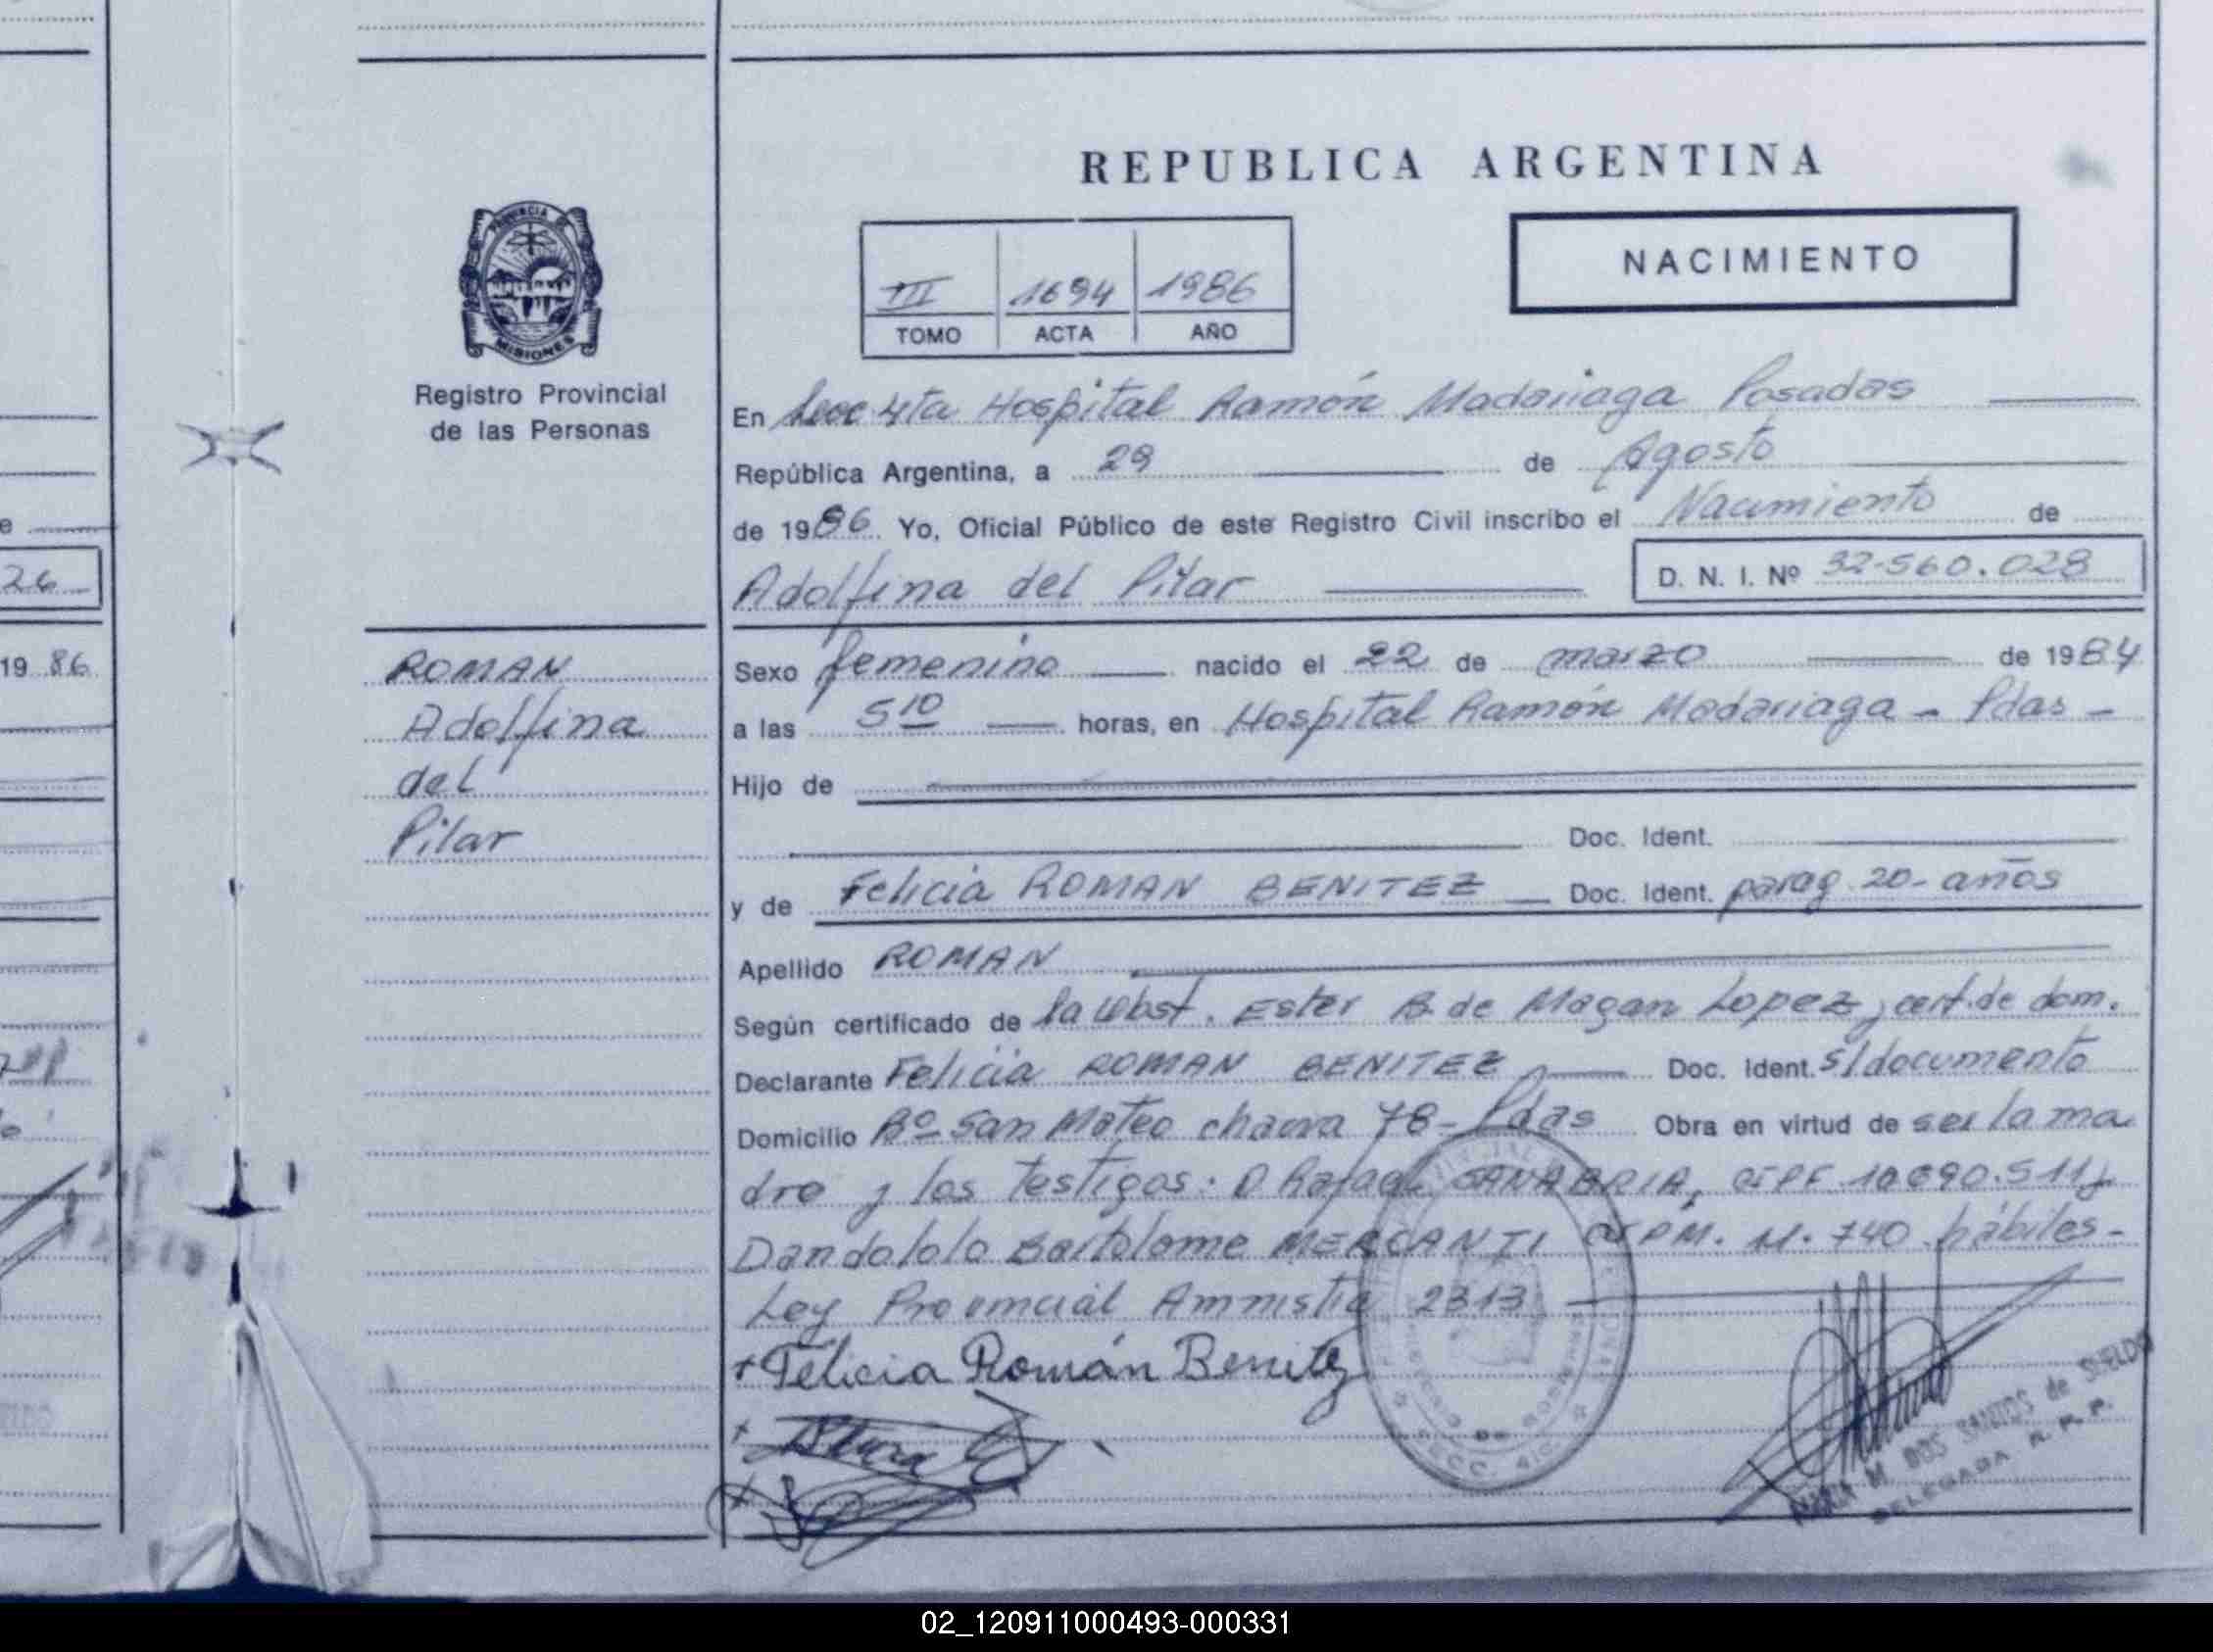 REPUBLICA ARGENTINA
NACIMIENTO
III 1694 1986
TOMO ACTA AÑO
PROVINCIA DE
MISIONES
Registro Provincial
de las Personas
En Secc 4ta Hospital Ramón Madariaga Posadas
República Argentina, a 29 de Agosto
de 1986. Yo, Oficial Público de este Registro Civil inscribo el Nacimiento de
Adolfina del Pilar
D. N. I. Nº 32.560.028
ROMAN
Adolfina
del
Pilar
Sexo femenino nacido el 22 de marzo de 1984
a las 5 10 horas, en Hospital Ramón Madariaga - Pdas -
Hijo de
Doc. Ident.
y de Felicia ROMAN BENITEZ Doc. Ident. parag 20- años
Apellido ROMAN
Según certificado de la Obst. Ester B. de Magan Lopez, cert. de dom.
Declarante Felicia ROMAN BENITEZ Doc. Ident. s/documento
Domicilio Bº San Mateo chacra 78- Pdas Obra en virtud de ser la ma
dre y los testigos: D. Rafael SANABRIA, CIPF 10.690.511 y
Dandololo Bartolome MERCANTI CIPM. 11.740 hábiles-
Ley Provincial Amnistia 2313
+ Felicia Román Benitez
26
19 86
DOS SANTOS de SHELDO
DELEGADA R. P. P.
02_120911000493-000331